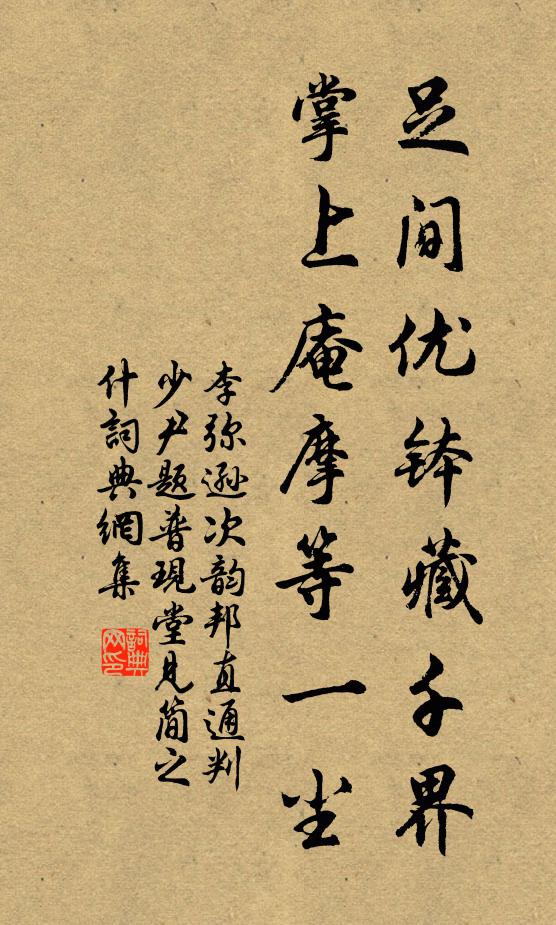 足间优钵藏千界
掌上庵摩等一尘
李弥逊次韵邦直通判
少尹题普現堂見简之
什詞典網集
詞典
网印